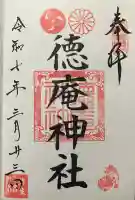 奉拝
徳庵神社
令和七年 三月廿三日